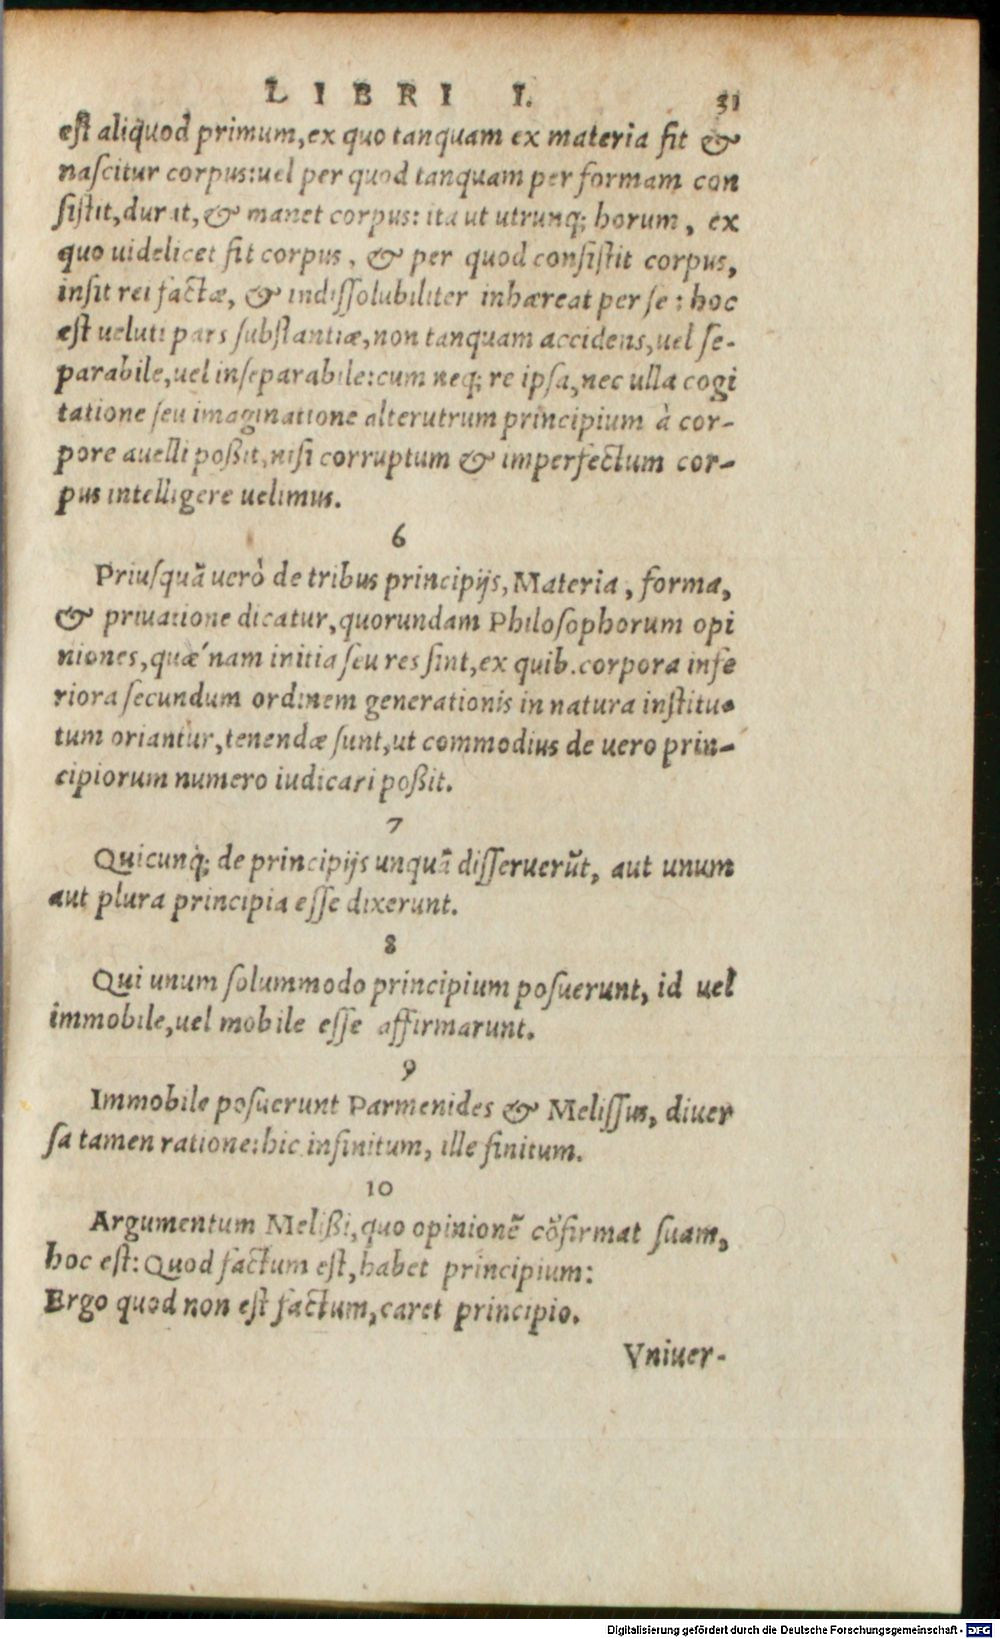 LIBRI I. 31
est aliquod primum, ex quo tanquam ex materia fit &
nascitur corpus: uel per quod tanquam per formam con
sistit, durat, & manet corpus: ita ut utrunq; horum, ex
quo uidelicet fit corpus, & per quod consistit corpus,
insit rei factæ, & indissolubiliter inhæreat per se: hoc
est ueluti pars substantiæ, non tanquam accidens, uel se-
parabile, uel inseparabile: cum neq; re ipsa, nec ulla cogi
tatione seu imaginatione alterutrum principium à cor-
pore auelli poßit, nisi corruptum & imperfectum cor-
pus intelligere uelimus.
6
Priusquā uerò de tribus principijs, Materia, forma,
& priuatione dicatur, quorundam Philosophorum opi
niones, quæ´nam initia seu res sint, ex quib. corpora infe
riora secundum ordinem generationis in natura institu-
tum oriantur, tenendæ sunt, ut commodius de uero prin-
cipiorum numero iudicari poßit.
7
Quicunq; de principijs unquā disseruerūt, aut unum
aut plura principia esse dixerunt.
8
Qui unum solummodo principium posuerunt, id uel
immobile, uel mobile esse affirmarunt.
9
Immobile posuerunt Parmenides & Melissus, diuer
sa tamen ratione: hic infinitum, ille finitum.
10
Argumentum Melißi, quo opinionē cōfirmat suam,
hoc est: Quod factum est, habet principium:
Ergo quod non est factum, caret principio.
Vniuer-
Digitalisierung gefördert durch die Deutsche Forschungsgemeinschaft - DFG